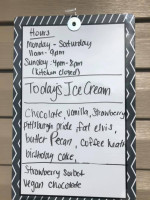 Hours
Monday - Saturday
11am - 9pm
Sunday: 4pm - 8pm
(kitchen closed)
Today's Ice Cream
Chocolate, Vanilla, Strawberry
Pittsburgh pride fat elvis,
butter Pecan, Coffee heath
birthday cake,
Strawberry Sorbet
Vegan Chocolate